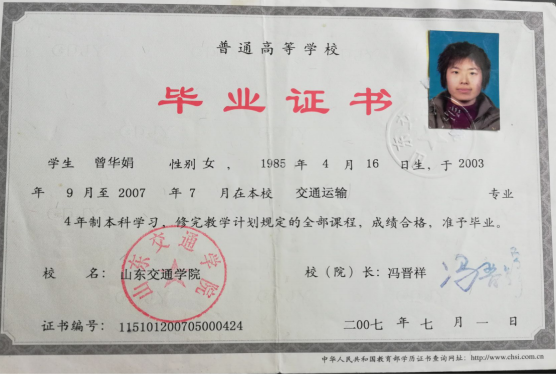 普通高等学校
毕业证书
学生 曾华娟 性别 女 ， 1985 年 4 月 16 日生，于 2003
年 9 月至 2007 年 7 月在本校 交通运输 专业
4年制本科学习，修完教学计划规定的全部课程，成绩合格，准予毕业。
校 名： 山东交通学院 校（院）长： 冯晋祥
山东交通学院
冯晋祥
证书编号： 115101200705000424 二〇〇七 年 七 月 一 日
中华人民共和国教育部学历证书查询网址：http://www.chsi.com.cn